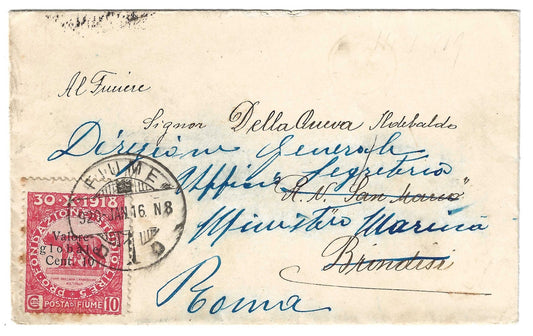 Al Furiere
Signor Della Queva Ildebaldo
Direzione Generale
Ufficio Segreteria
R. N. "San Marco"
Ministero Marina
Brindisi
Roma
FIUME
920-JAN.16. N8
D
30·X·1918
PRO·FONDAZIONE
Valore
globale
Cent. 10
10
POSTA DI FIUME
10